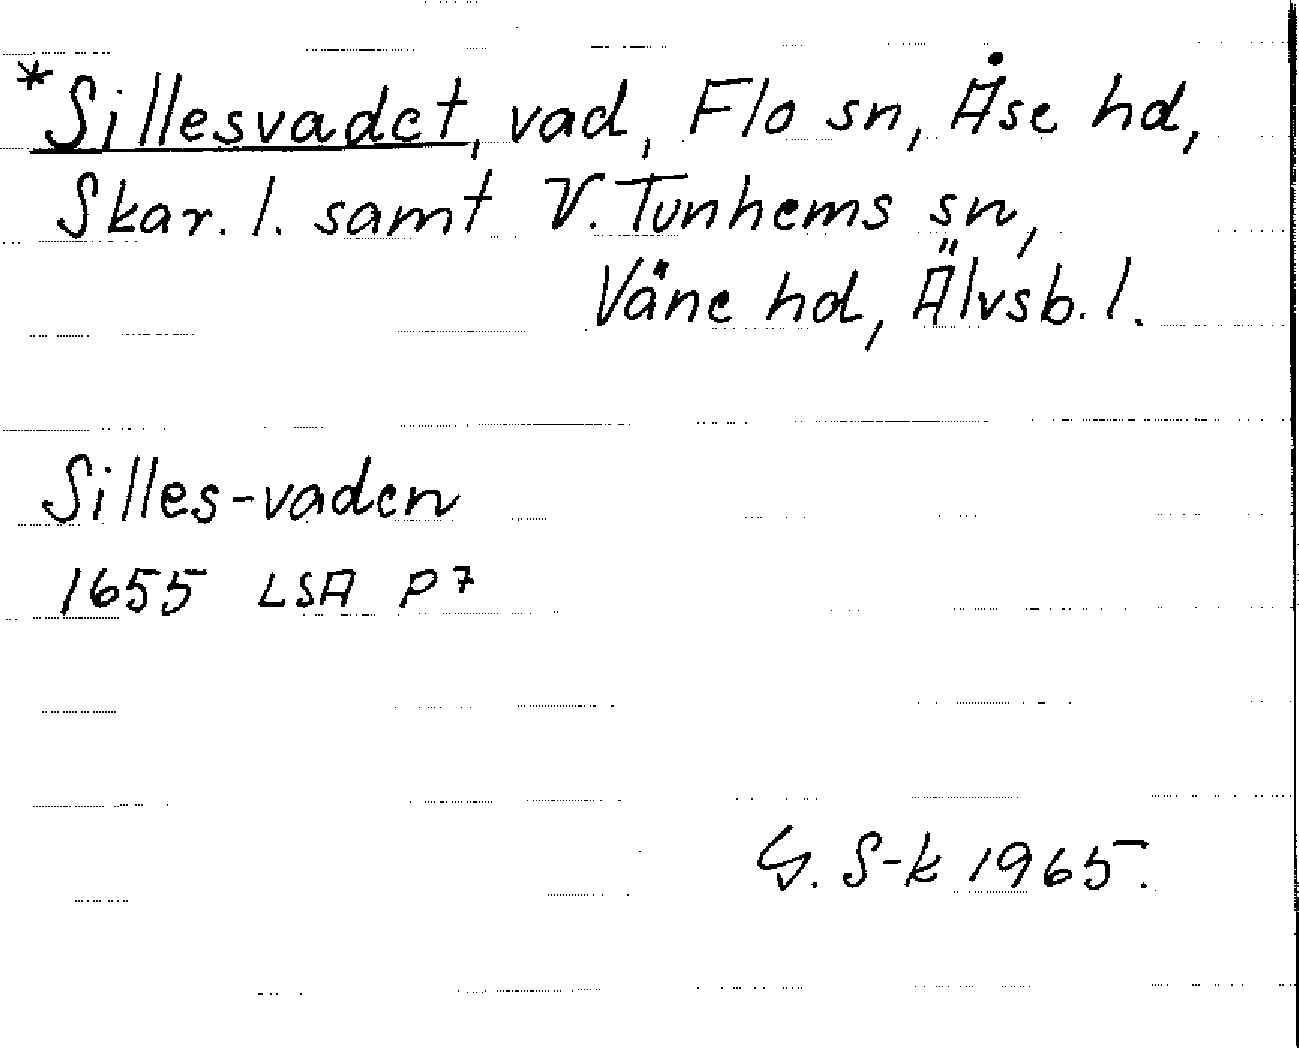 *Sillesvadet, vad, Flo sn, Åse hd,
Skar. l. samt V. Tunhems sn,
Väne hd, Älvsb. l.
Silles-vaden
1655 LSA P7
G. S-k 1965.